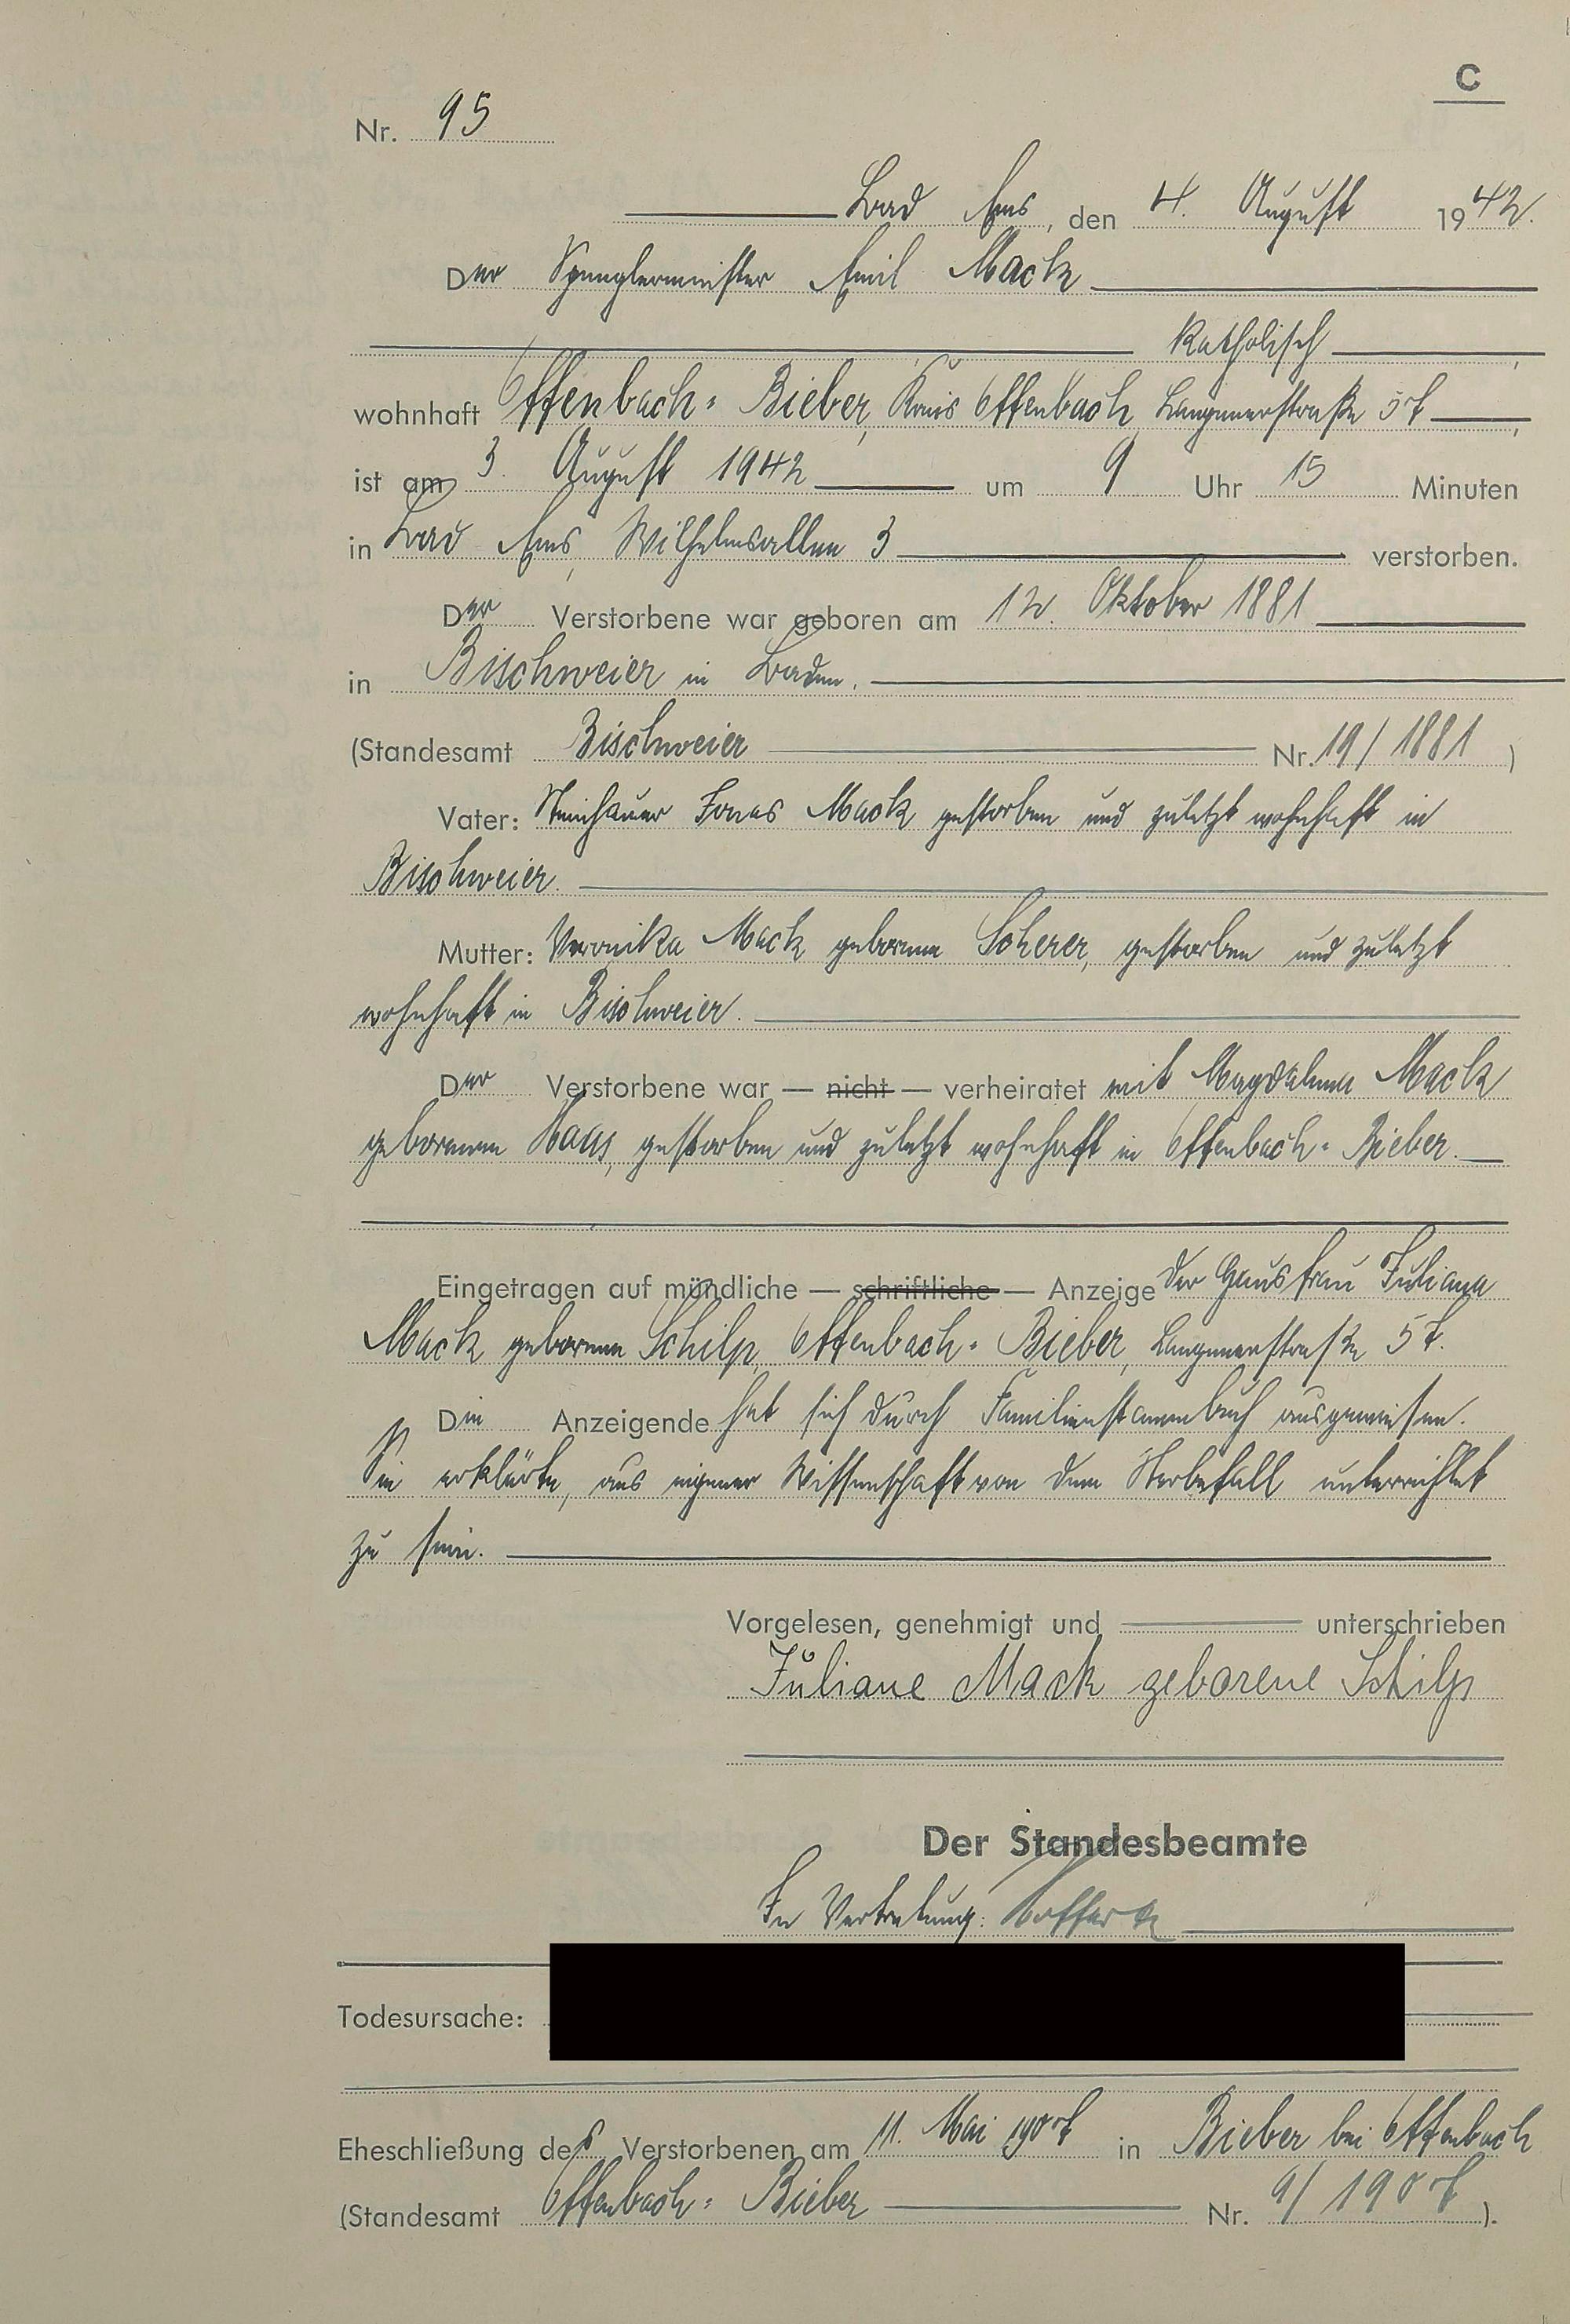 C
Nr. 95
Bad Ems, den 4. August 1942.
Der Spenglermeister Emil Mack
katholisch
wohnhaft Offenbach-Bieber, Kreis Offenbach, Langenerstraße 57,
ist am 3. August 1942 um 9 Uhr 15 Minuten
in Bad Ems, Wilhelmsallee 3 verstorben.
Der Verstorbene war geboren am 12. Oktober 1881
in Bischweier in Baden.
(Standesamt Bischweier Nr. 19/1881)
Vater: Steinhauer Jonas Mack gestorben und zuletzt wohnhaft in
Bischweier.
Mutter: Veronika Mack geborene Scherer, gestorben und zuletzt
wohnhaft in Bischweier.
Der Verstorbene war — nicht — verheiratet mit Magdalena Mack
geborenen Haas, gestorben und zuletzt wohnhaft in Offenbach-Bieber.
Eingetragen auf mündliche — schriftliche — Anzeige der Hausfrau Juliana
Mack geborene Schilp, Offenbach-Bieber, Langenerstraße 57.
Die Anzeigende hat sich durch Familienstammbuch ausgewiesen.
Sie erklärte, aus eigener Wissenschaft von dem Sterbefall unterrichtet
zu sein.
Vorgelesen, genehmigt und unterschrieben
Juliane Mack geborene Schilp
Der Standesbeamte
In Vertretung:
Todesursache:
Eheschließung des Verstorbenen am 11. Mai 1907 in Bieber bei Offenbach
(Standesamt Offenbach-Bieber Nr. 9/1907).